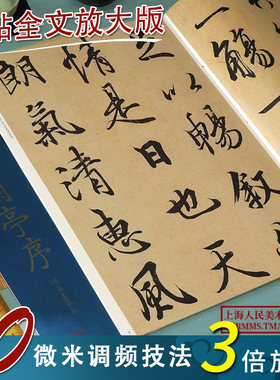 帖全文放大版
一觴一
足以暢叙
情是日也天
朗氣清惠風
亭序
上海人民美术
微米调频技法 3倍放